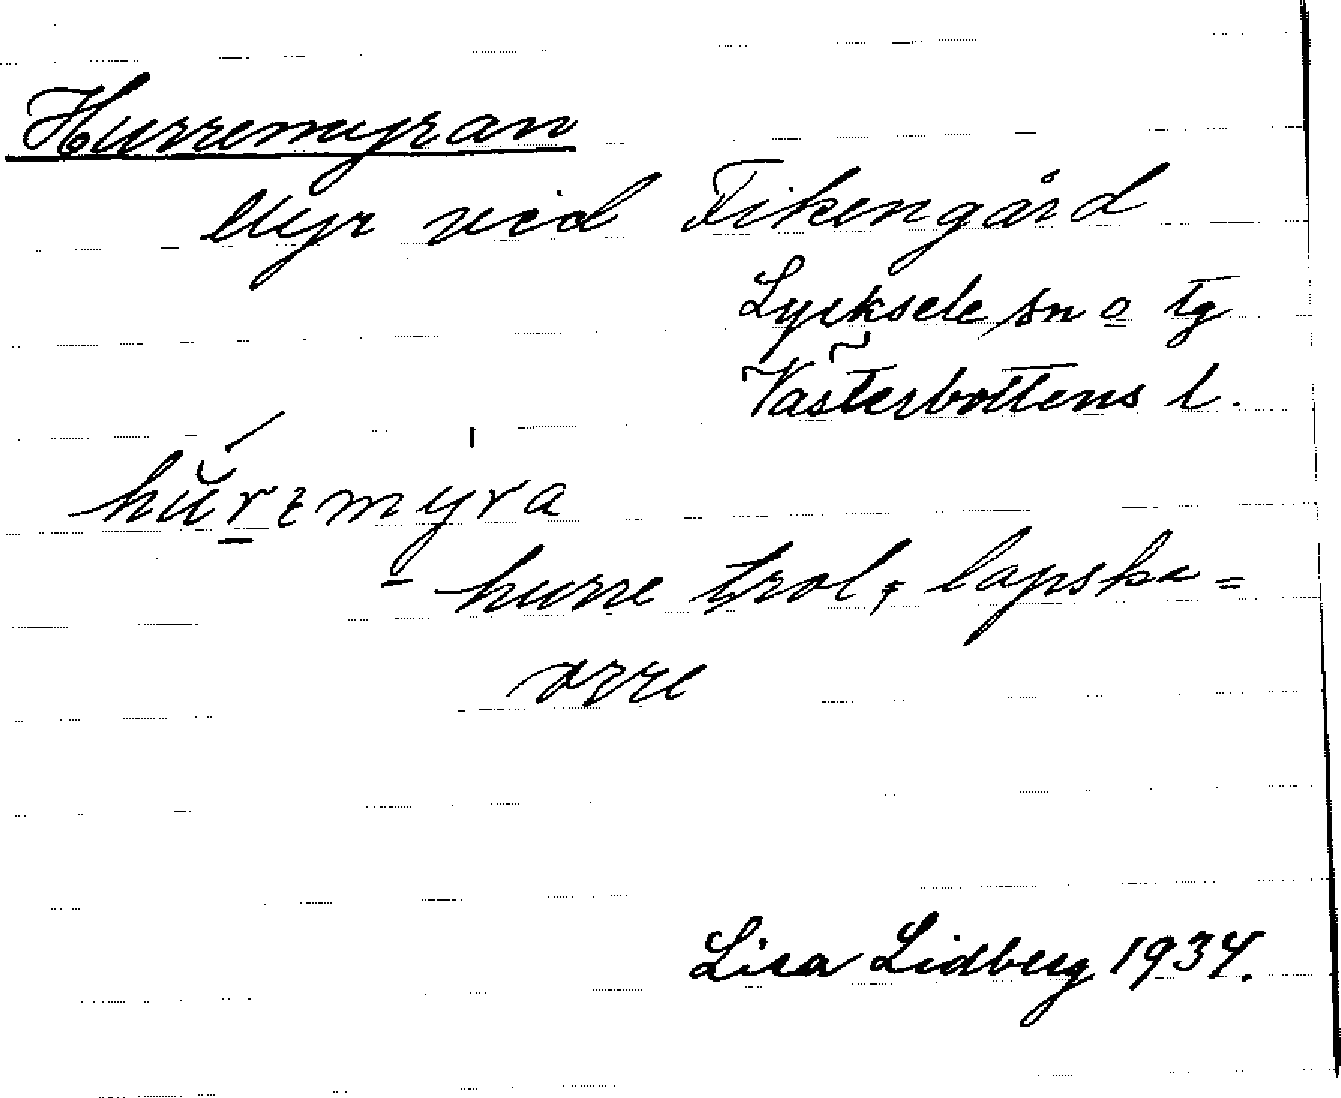 Hurremyran
Myr vid Fikengård
Lycksele sn o tg
Västerbottens l.
hŭrεmyra
hurre trol, lapska =
orre
Lisa Lidberg 1934.